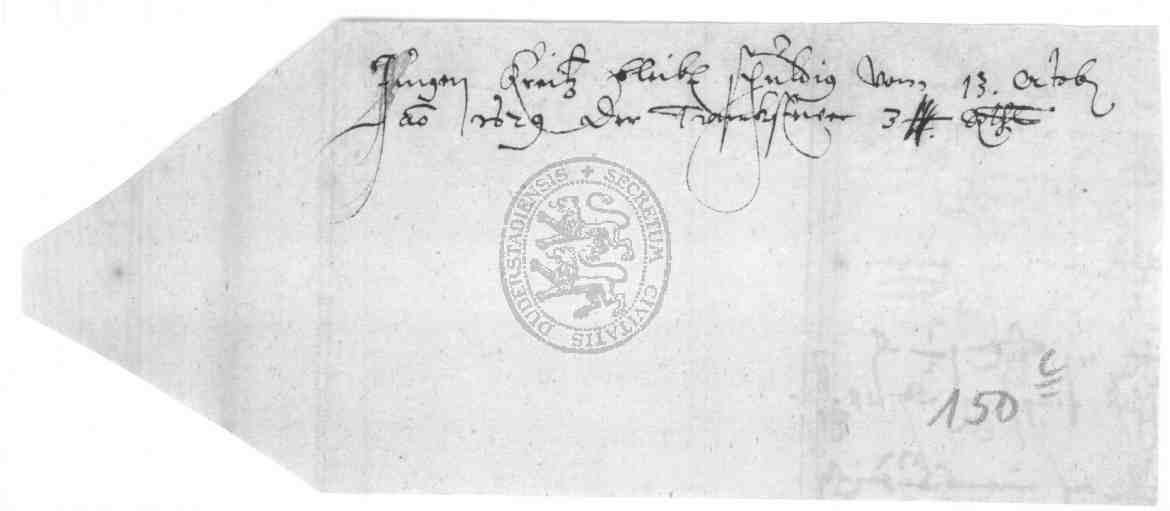 Jungen Creütz bleibt schuldig vom 13. Octob
ao 1629 der Trancksteuer 3
SECRETUM CIVITATIS DUDERSTADIENSIS
150 c